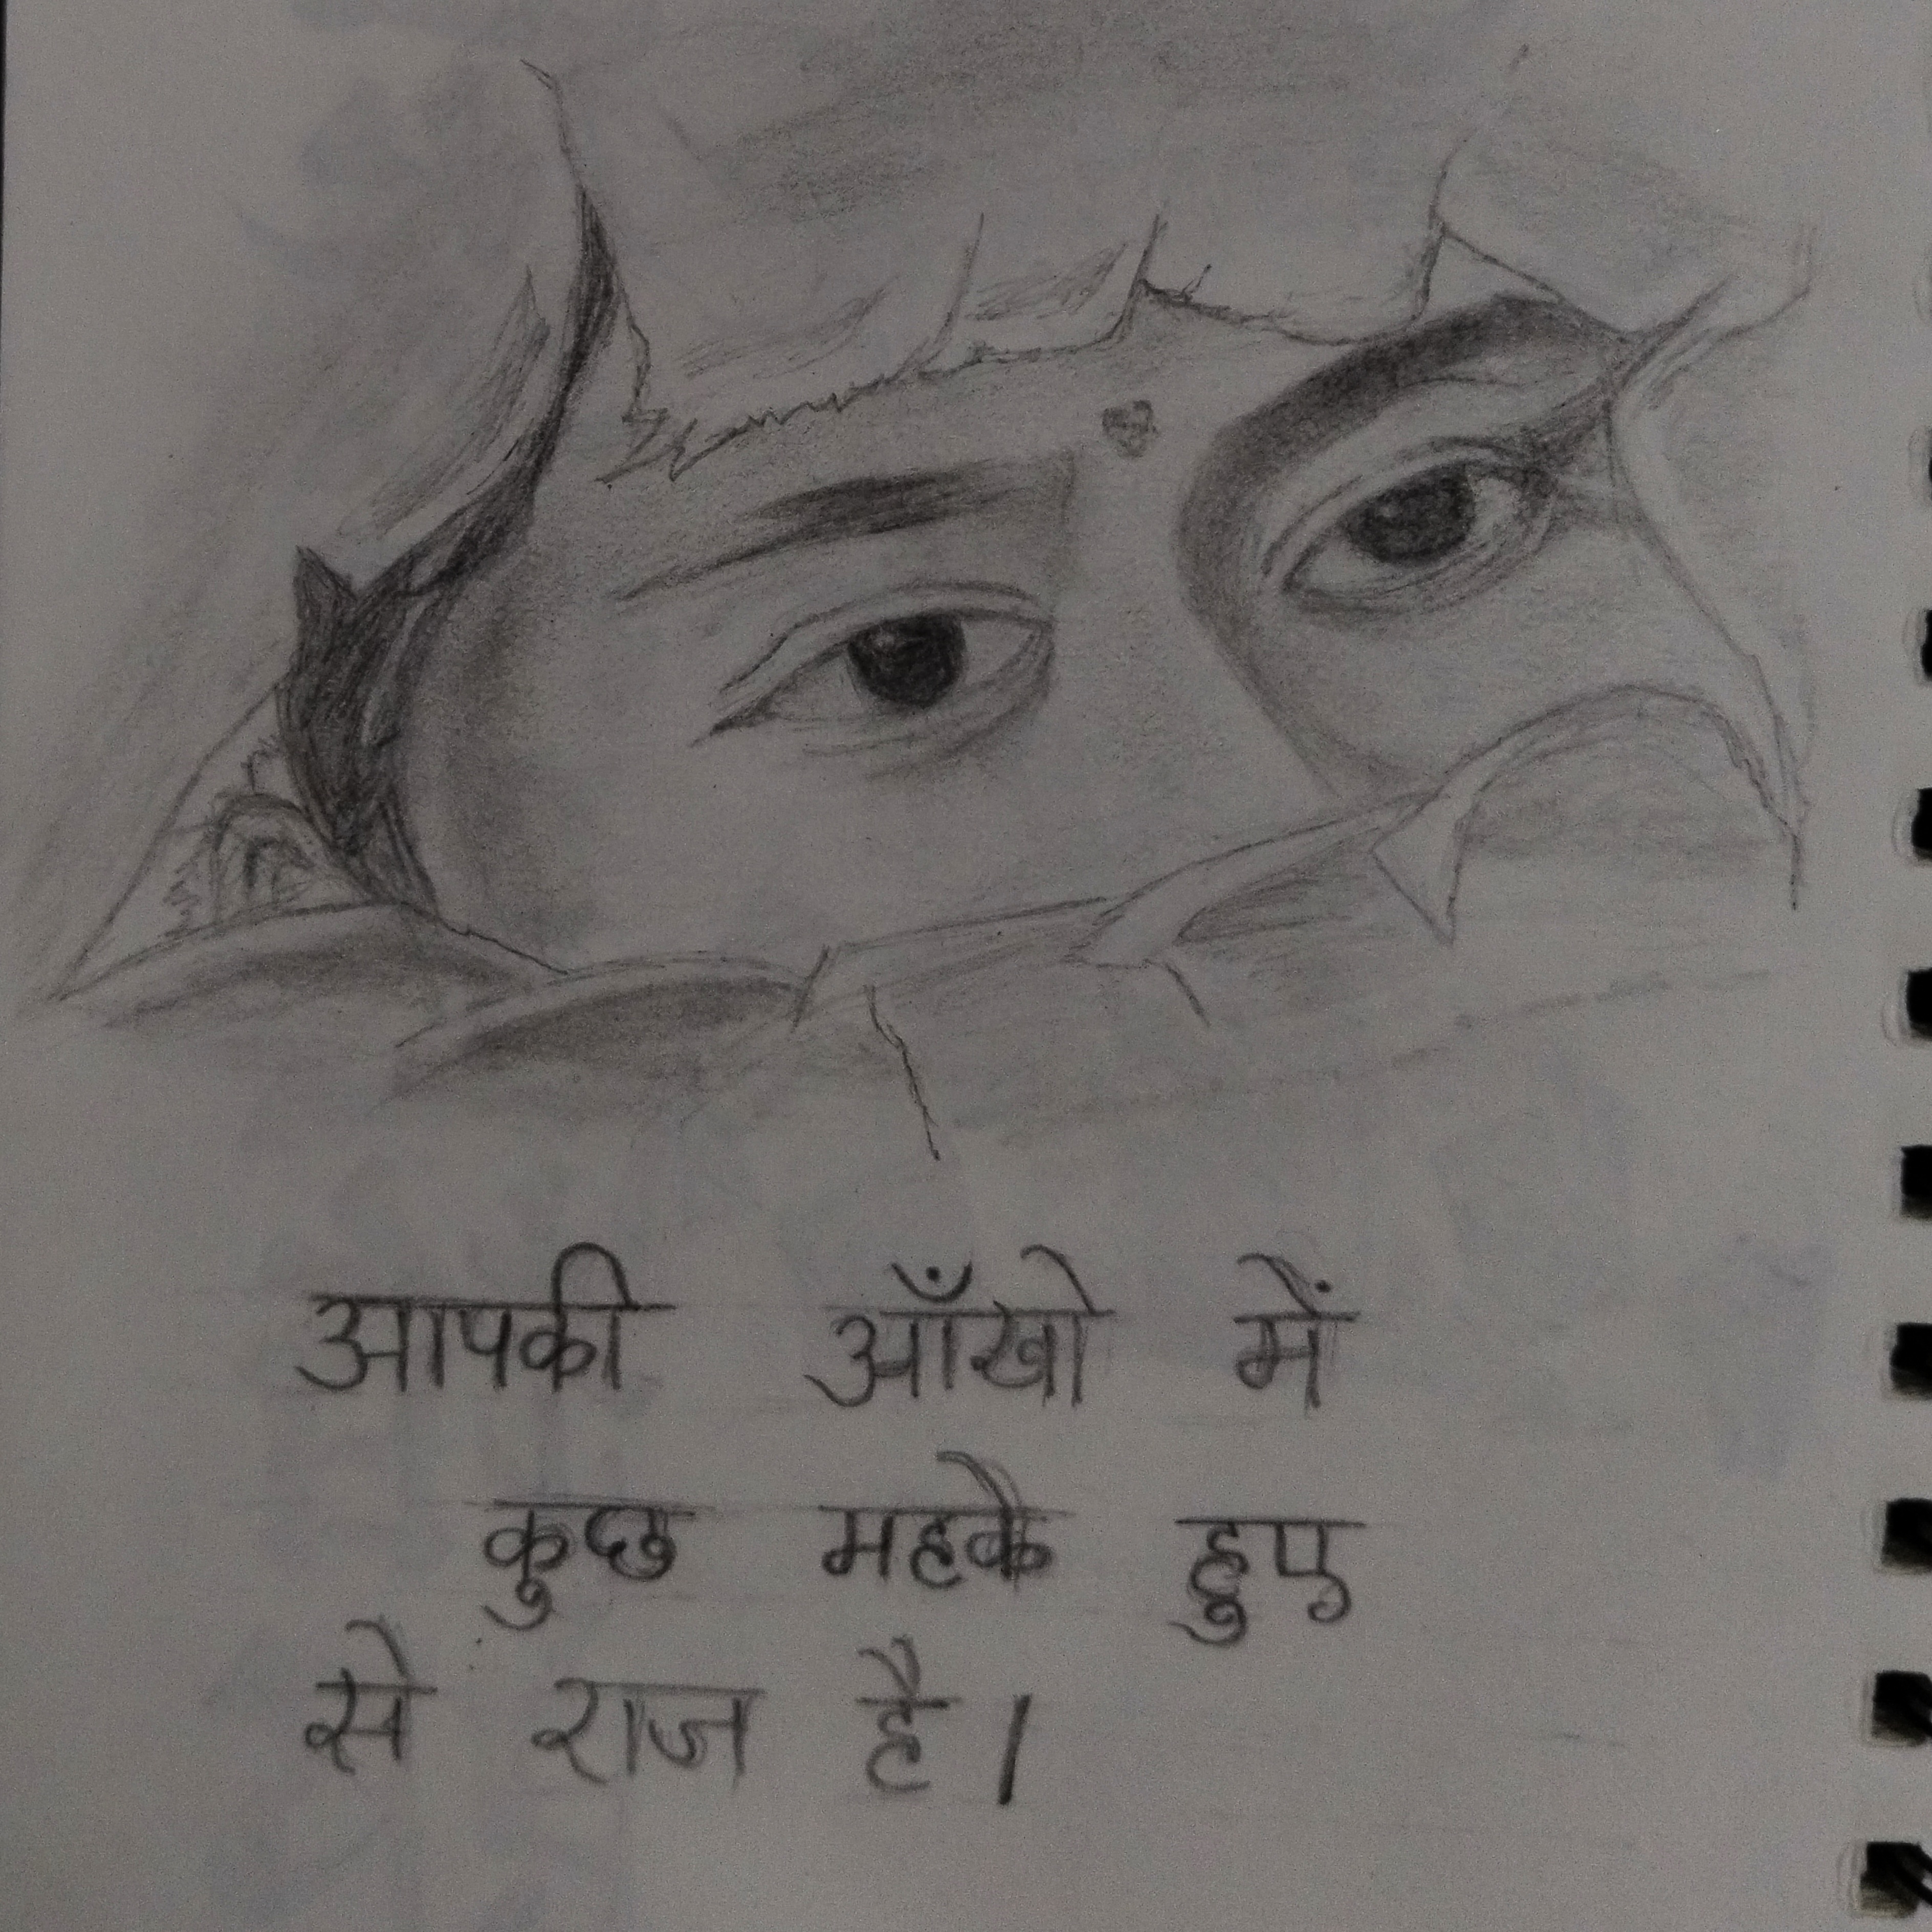 आपकी आँखो में
कुछ महके हुए
से राज है।